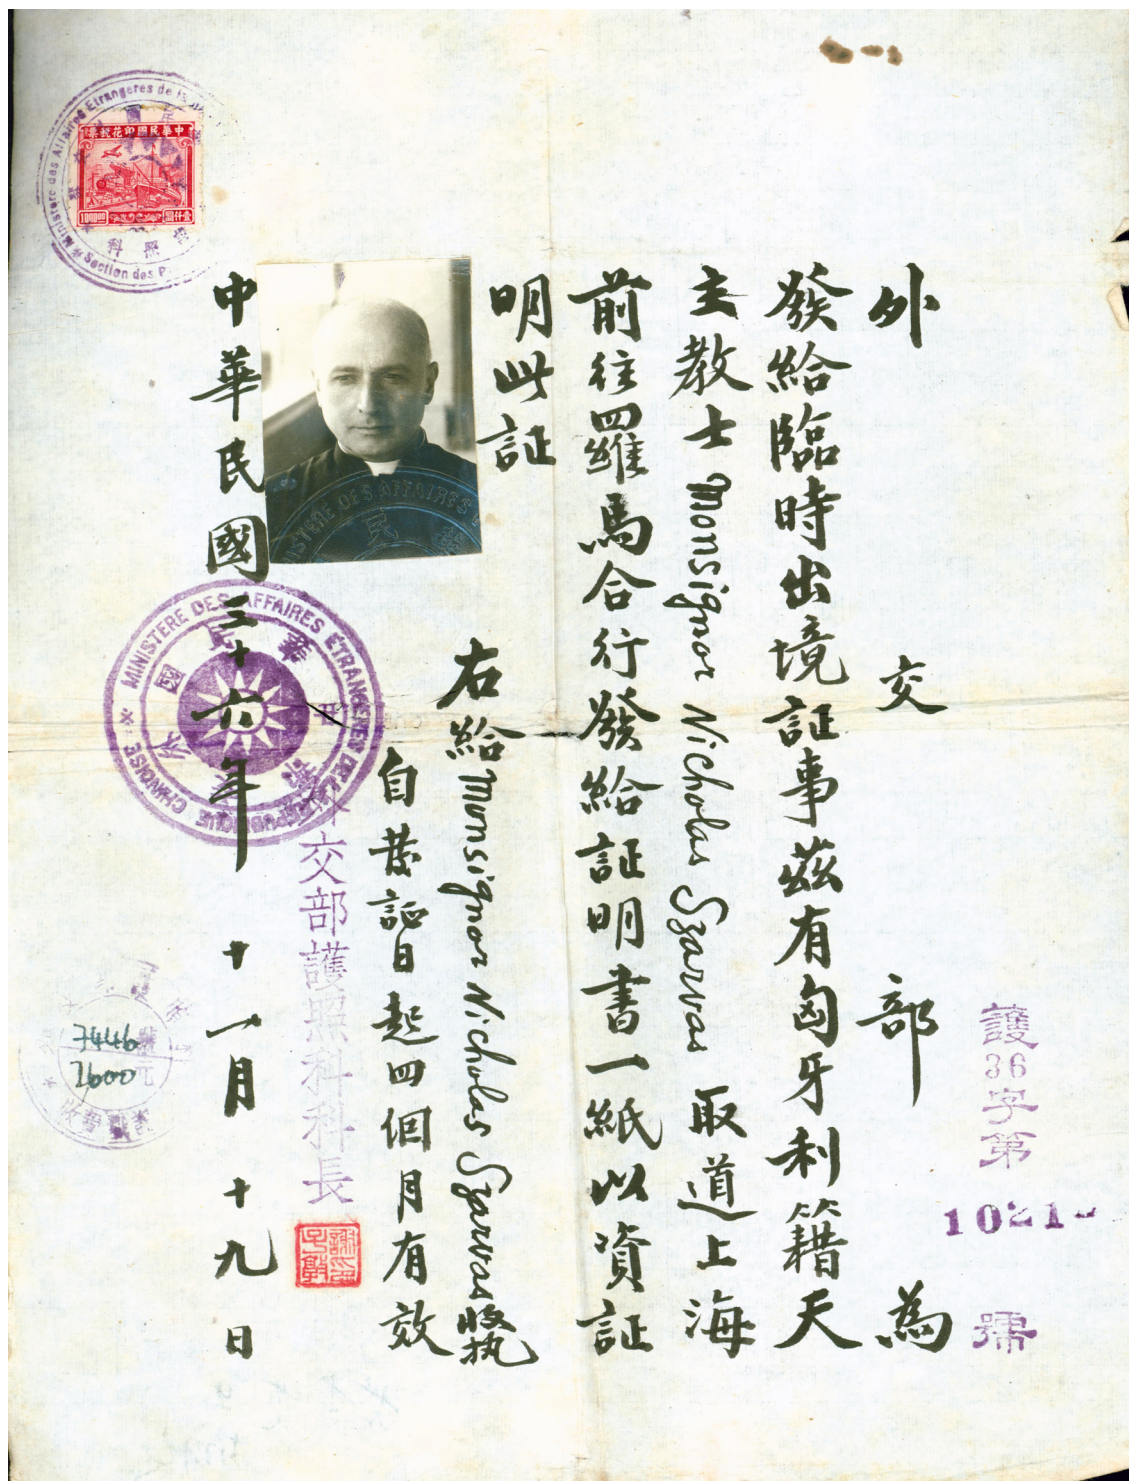 護36字第
1021
號
外交部為
發給臨時出境証事茲有匈牙利籍天
主教士 Monsignor Nicholas Szarvas 取道上海
前往羅馬合行發給証明書一紙以資証
明此証
右給 Monsignor Nicholas Szarvas 收执
自發証日起四個月有效
交部護照科科長
中華民國三十六年十一月十九日
MINISTÈRE DES AFFAIRES ÉTRANGÈRES DE LA RÉPUBLIQUE CHINOISE
Ministère des Affaires Étrangères de la
Section des P
中華民國印花稅票
1000.00
壹仟圓
照科
MINISTÈRE DES AFFAIRES
民
7446 號
1600 元